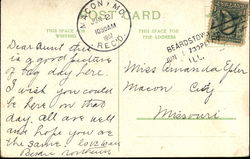 MACON, MO.
10:30AM
REC'D.
POST CARD
THIS SPACE FOR WRITING
BEARDSTOWN
ILL.
Dear Aunt this
is a good picture
of tag day here.
I wish you could
be here on that
day. All are well
and hope you are
the same.
Miss Amanda Epler
Macon City
Missouri